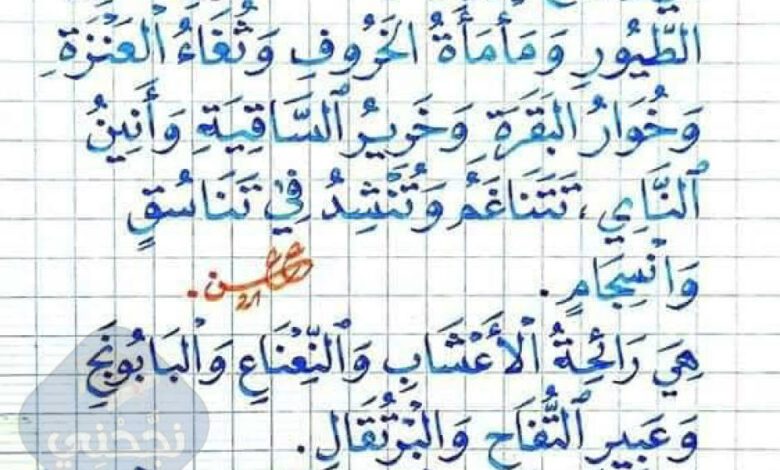 الطُّيُورِ وَمَأْمَأَةُ الخَرُوفِ وَثُغَاءُ الْعَنْزَةِ
وَخُوَارُ البَقَرَةِ وَخَرِيرُ السَّاقِيَةِ وَأَنِينُ
النَّايِ، تَتَنَاغَمُ وَتُنْشِدُ فِي تَنَاسُقٍ
وَانْسِجَامٍ.
هِيَ رَائِحَةُ الْأَعْشَابِ وَالنِّعْنَاعِ وَالْبَابُونَجِ
وَعَبِيرِ التُّفَاحِ وَالْبُرْتُقَالِ.
نَجِّدْنِي